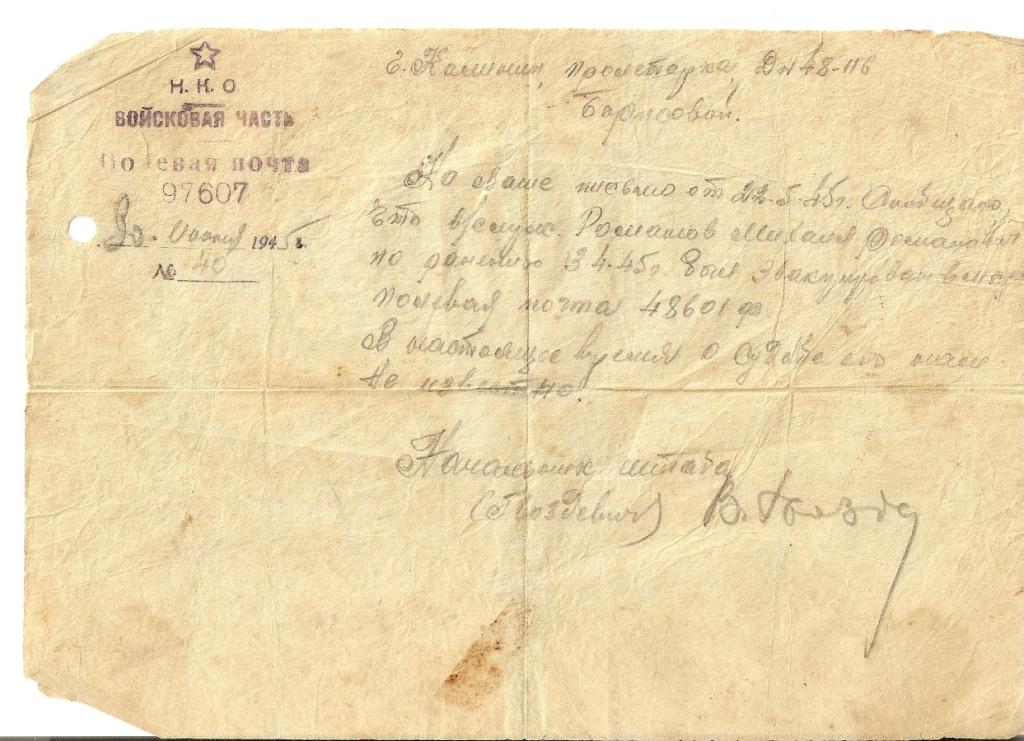 Н. К. О.
ВОЙСКОВАЯ ЧАСТЬ
Полевая почта
97607
Июня 1945 г.
№ 40
г. Калинин, пролетарка, Дн 48-116
Борисовой.
На ваше письмо от 22.5.45г. Сообщаю,
Что в/служ. Романов Михаил Романович
по ранению 3.4.45г. был Эвакуирован
полевая почта 48601 ф
В настоящее время о судьбе его нам
Не известно.
Начальник штаба
(Гвоздевич)